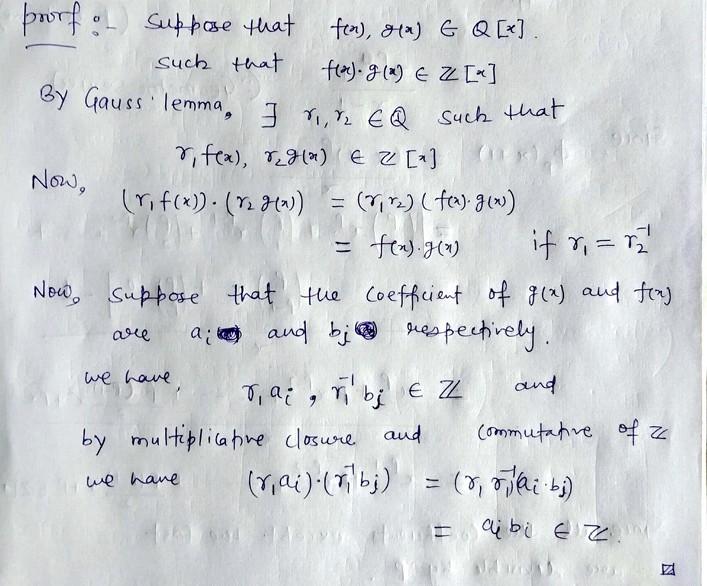 proof :- Suppose that f(x), g(x) ∈ Q[x].
such that f(x)·g(x) ∈ ℤ[x]
By Gauss' lemma, ∃ r₁, r₂ ∈ ℚ such that
r₁f(x), r₂g(x) ∈ ℤ[x]
Now,
(r₁f(x))·(r₂g(x)) = (r₁r₂)(f(x)·g(x))
= f(x)·g(x) if r₁ = r₂⁻¹
Now, Suppose that the coefficient of g(x) and f(x)
are aᵢ and bⱼ respectively.
we have, r₁aᵢ, r₁⁻¹bⱼ ∈ ℤ and
by multiplicative closure and commutative of ℤ
we have (r₁aᵢ)·(r₁⁻¹bⱼ) = (r₁r₁⁻¹)(aᵢ·bⱼ)
= aᵢbᵢ ∈ ℤ.